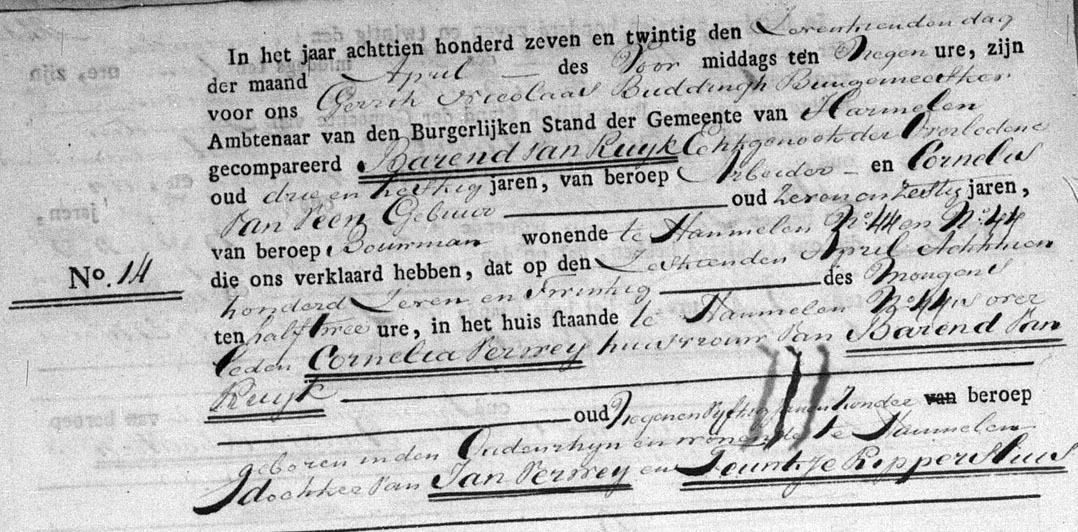 In het jaar achttien honderd zeven en twintig den Zeventienden dag
der maand April des Voor middags ten Negen ure, zijn
voor ons Gerrit Nicolaas Buddingh Burgemeester
Ambtenaar van den Burgerlijken Stand der Gemeente van Harmelen
gecompareerd Barend van Ruyk Echtgenoot der Overledene
oud drie en jaren, van beroep Arbeider en Cornelis
van Veen Gebuur oud Zeven en Zestig jaren,
van beroep Bouwman wonende te Harmelen No. 44 en No.
die ons verklaard hebben, dat op den Zestienden April Achttien
No. 14
honderd Zeven en Twintig des Morgens
ten half twee ure, in het huis staande te Harmelen No. 44 is over
leden Cornelia Verwey huisvrouw van Barend van
Ruyk
oud Negen en Vyftig jaren zonder van beroep
geboren in den Oudenrhyn en wonende te Harmelen
dochter van Jan Verwey en Teuntje Kippersluis